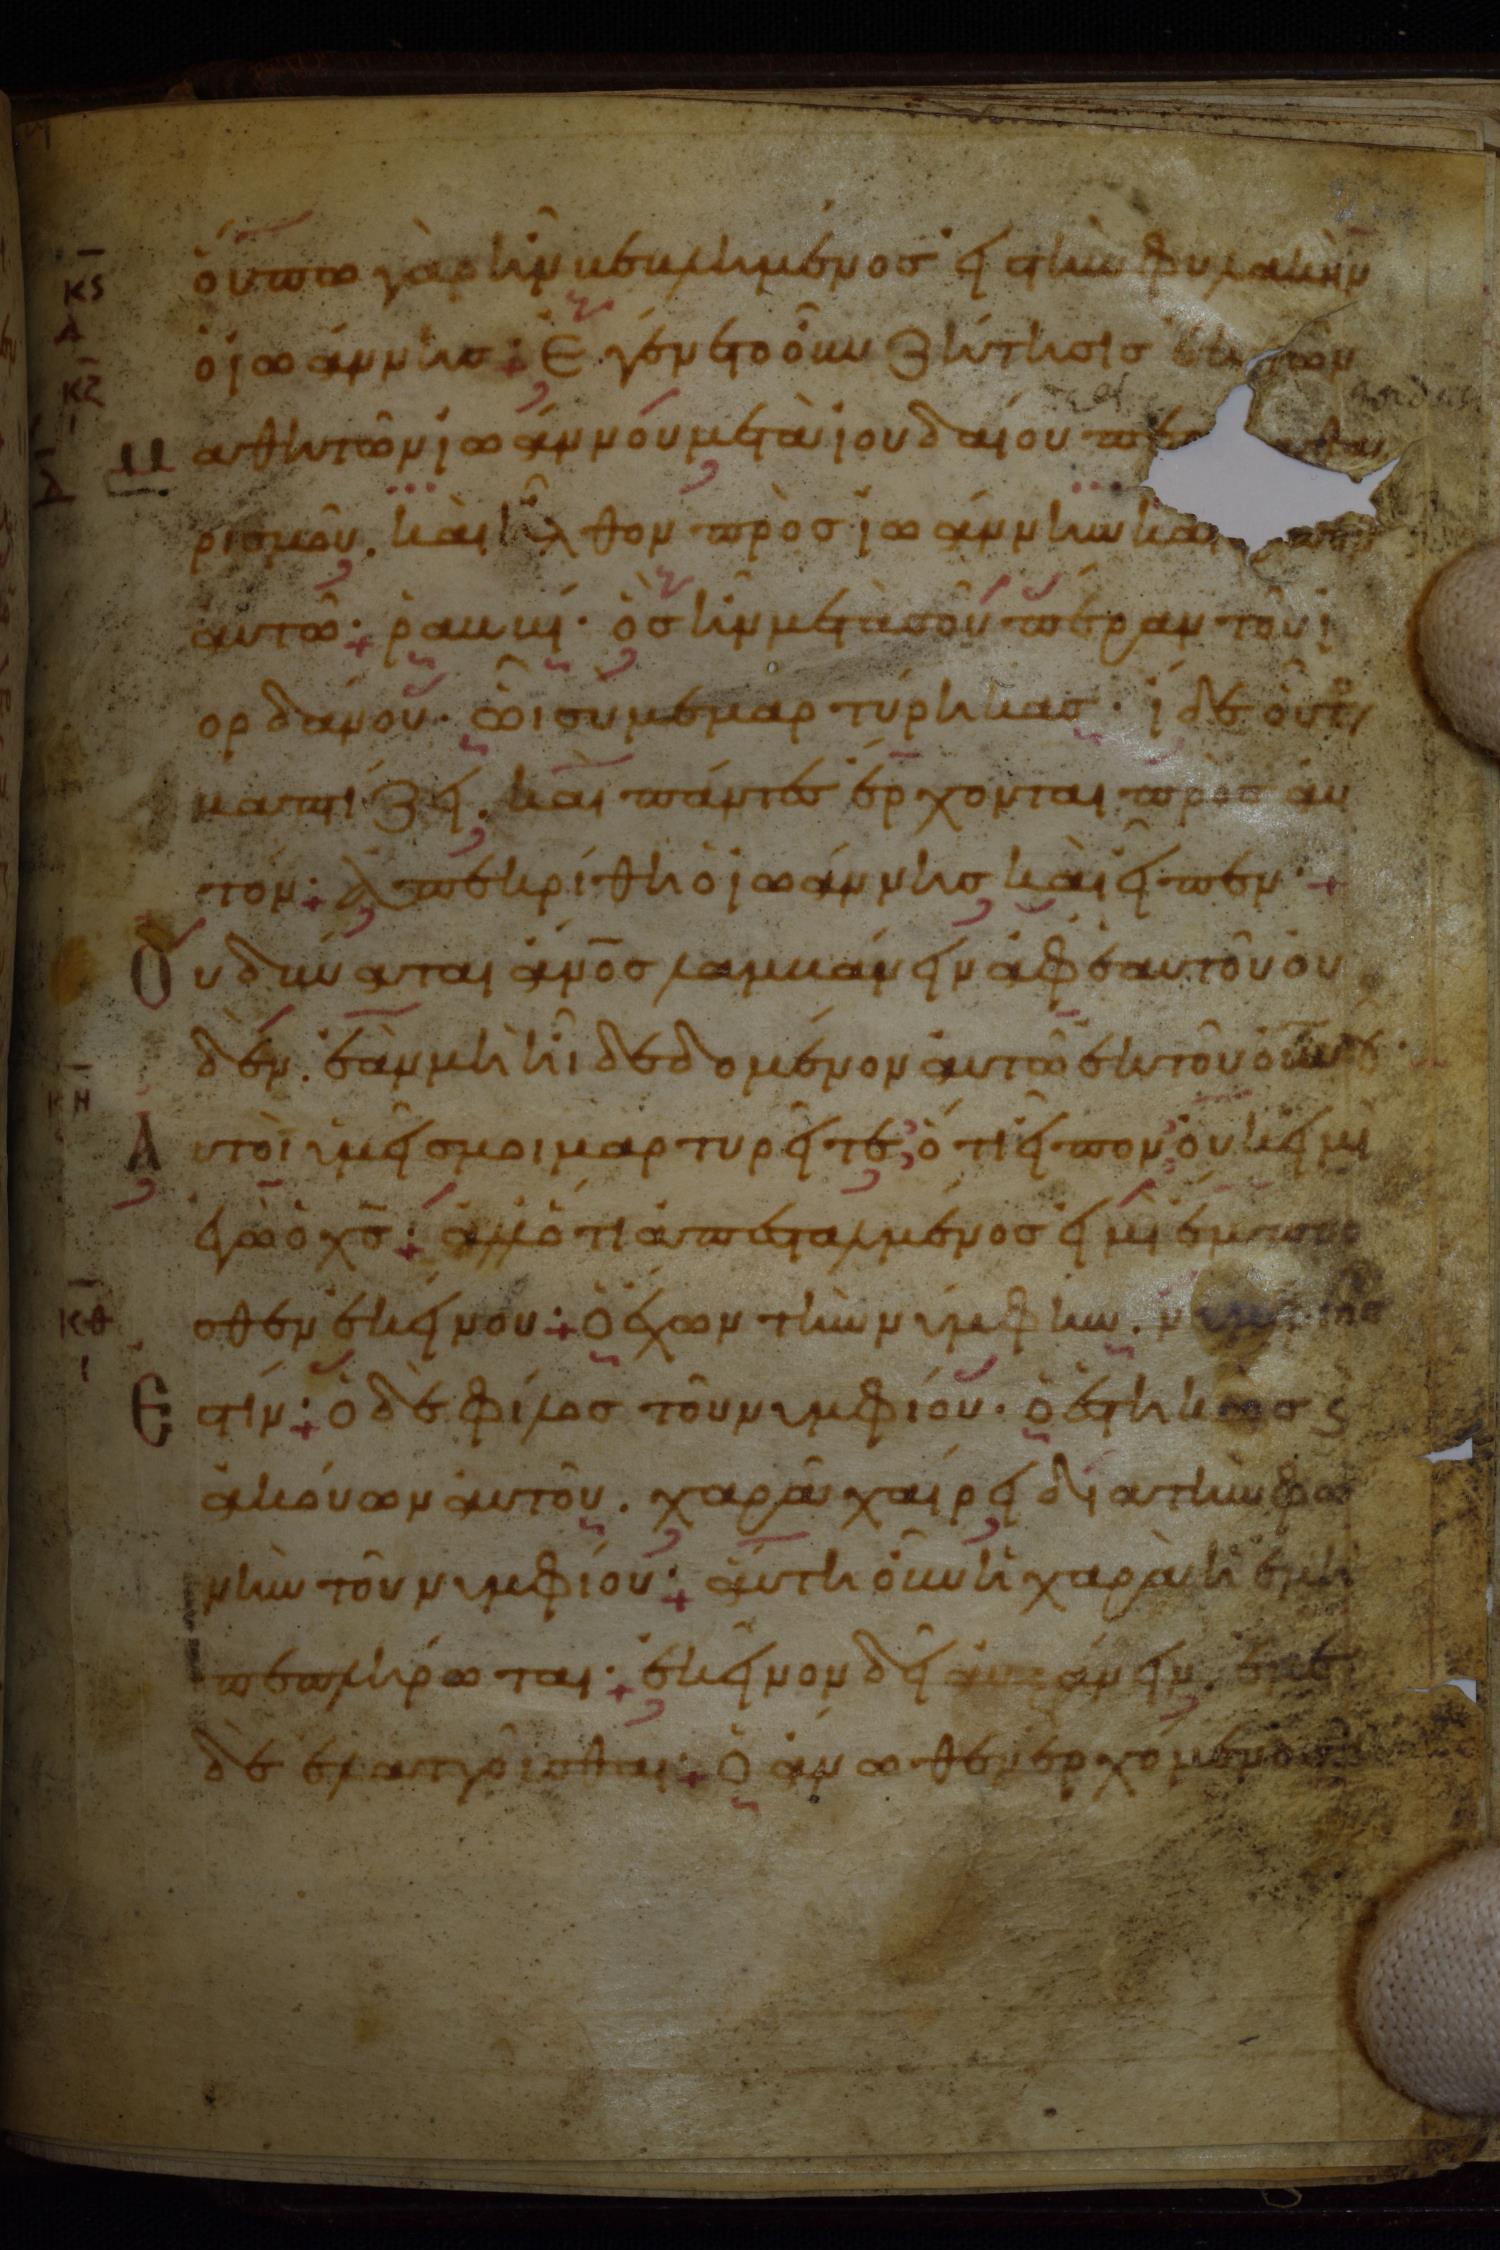 κϛ ὄυπω γὰρ ἦν κεκλημένοσ εἰστὴν φυλακὴν
ὁ ἰωάννησ: Ἐγένετο ὀῦν ζήτησισ ἐκ τῶν
κζ Μαθητῶν ἰωάννου μετὰ ἰουδαίου
ρισμοῦ. καὶ ἦλθον πρὸσ ἰωάννην καὶ
ἀυτῶ· ῥαββί· ὃσ ἦν μετὰ σοῦ πέραν τοῦ ἰ
ορδάνου· ὧι σύ μεμαρτύρηκασ· ἴδε ὁῦτος
βαπτίζει. καὶ πάντεσ ἔρχονται πρὸσ ἀυ
τόν: Ἀπεκρίθη ὁ ἰωάννησ καὶ εἶπεν·
Ὀυ δύναται ἄνο̅σ λαμβάνειν ἀφ ἑαυτοῦ ὀυ
δέν. ἐὰν μὴ ἦι δεδομένον ἀυτῶ ἐκ τοῦ ὀυνου·
κη Ἀυτοὶ ὑμεῖσ μοι μαρτυρεῖτε, ὅτι εἶπον ὀυκ εἰμὶ
ἐγὼ ὁ χσ̅: ἀλλ ὅτι ἀπεσταλμένοσ εἰμὶ ἔμπρο
κθ σθεν ἐκείνου: Ὁ ἔχων τὴν νύμφην. νυμφίοσ
Ἐστίν: ὁ δὲ φίλοσ τοῦ νυμφίου· ὁ ἑστηκὼσ ϛ
ἀκούων ἀυτοῦ. χαρᾶ χαίρει διὰ τὴν φω
νὴν τοῦ νυμφίου: ἅυτη ὀῦν ἡ χαρὰ ἡ ἐμὴ
πεπλήρωται: ἐκεῖνον δεῖ ἀυξάνειν. ἐμὲ
δὲ ἐλαττοῦσθαι: Ὁ ἄνωθεν ἐρχόμενοσ